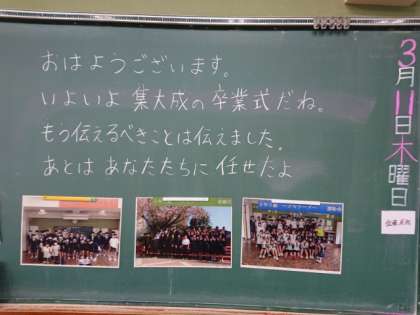 おはようございます。
いよいよ 集大成の 卒業式だね。
もう伝えるべきことは伝えました。
あとは あなたたちに 任せたよ
3月11日木曜日